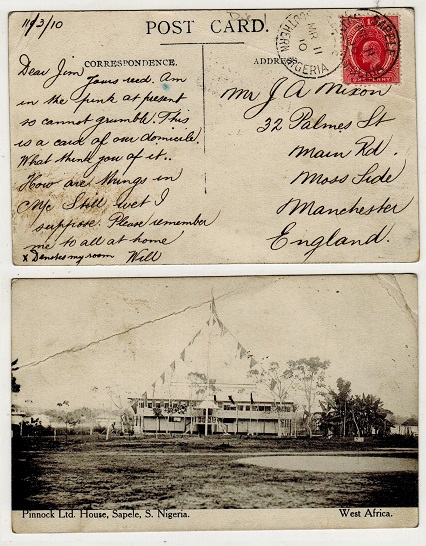 11/3/10
POST CARD.
CORRESPONDENCE.
ADDRESS
Dear Jim
Yours recd. Am
in the pink at present
so cannot grumble. This
is a card of our domicile.
What think you of it..
How are things in
M/c Still wet I
suppose. Please remember
me to all at home
x Denotes my room Will
SOUTHERN NIGERIA
MR 11
10
SAPELE
Mr J A Nixon
32 Palmes St
Main Rd.
Moss Side
Manchester
England.
Pinnock Ltd. House, Sapele, S. Nigeria.
West Africa.